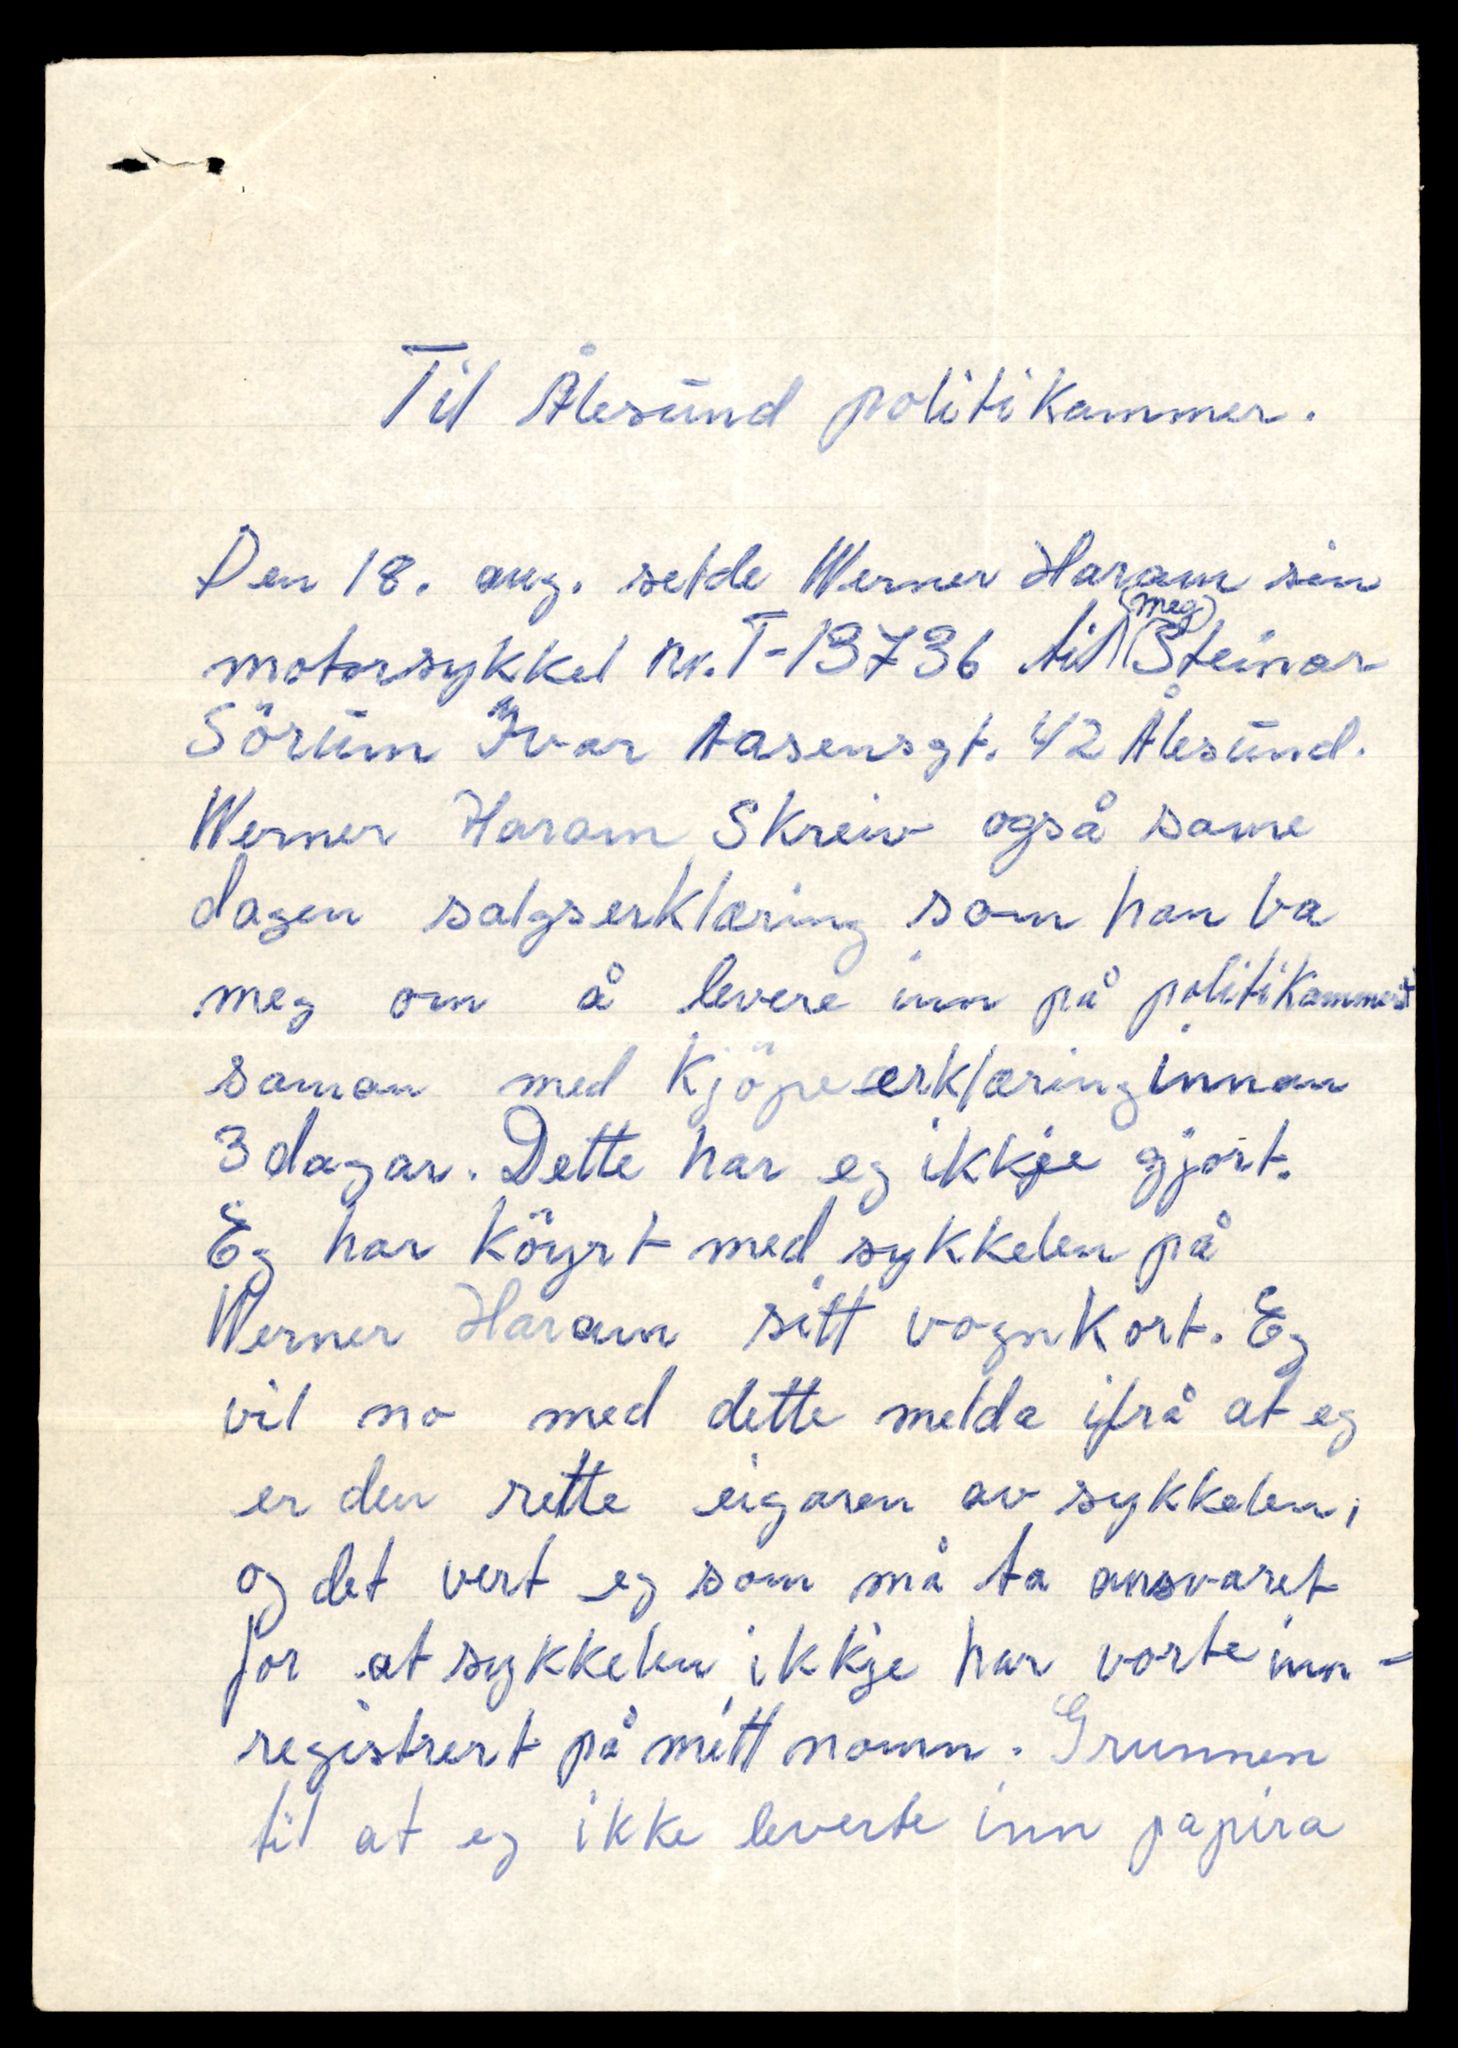 Til Ålesund politikammer.
Den 18. aug. selde Werner Haram sin
motorsykkel nr. T-13736 til (meg) Steinar
Sörum Ivar Aasensgt. 42 Ålesund.
Werner Haram Skreiv også same
dagen salgserklæring som han ba
meg om å levere inn på politikammeret
saman med kjöpeerklæring innan
3 dagar. Dette har eg ikkje gjort.
Eg har köyrt med sykkelen på
Werner Haram sitt vognkort. Eg
vil no med dette melda ifrå at eg
er den rette eigaren av sykkelen,
og det vert eg som må ta ansvaret
for at sykkelen ikkje har vorte inn-
registrert på mitt namn. Grunnen
til at eg ikke leverte inn papira